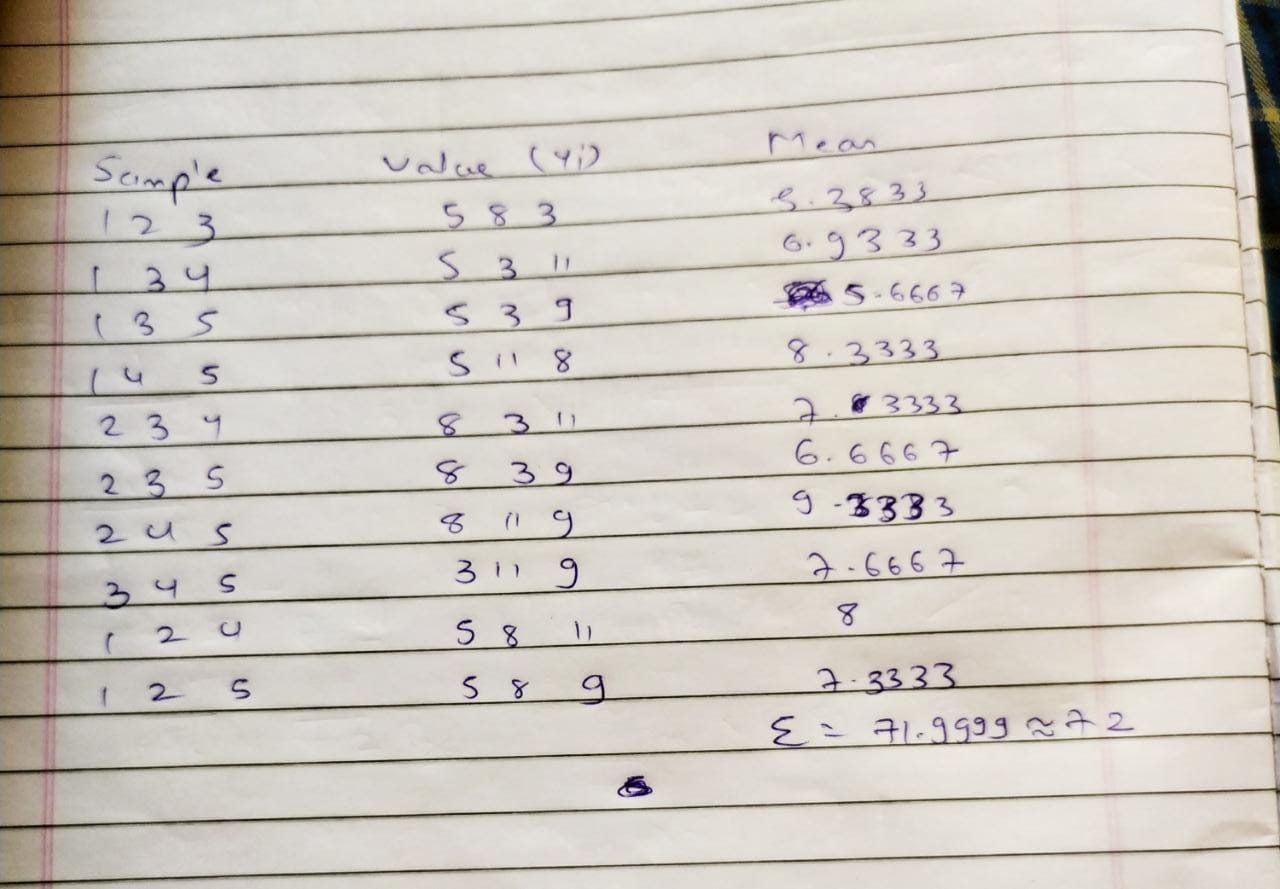 Sample Value (Yi) Mean
1 2 3 5 8 3 5.3833
1 3 4 5 3 11 6.9333
1 3 5 5 3 9 5.6667
1 4 5 5 11 8 8.3333
2 3 4 8 3 11 7.3333
2 3 5 8 3 9 6.6667
2 4 5 8 11 9 9.3333
3 4 5 3 11 9 7.6667
1 2 4 5 8 11 8
1 2 5 5 8 9 7.3333
Σ = 71.9999 ≈ 72